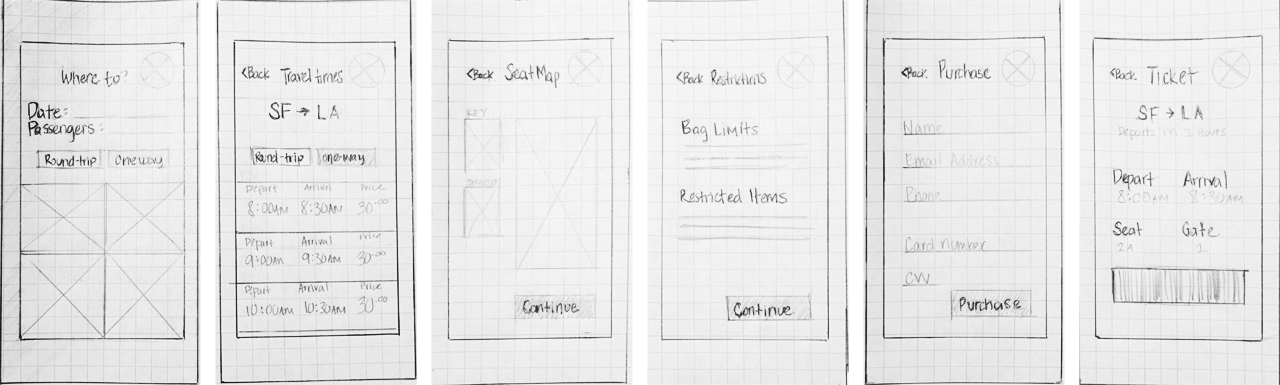 Where to?
Date:
Passengers:
Round-trip
One way
<Back Travel times
SF → LA
Round-trip
one-way
Depart Arrival Price
8:00AM 8:30AM 30.00
Depart Arrival Price
9:00am 9:30AM 30.00
Depart Arrival Price
10:00AM 10:30AM 30.00
<Back Seat Map
KEY
Continue
<Back Restrictions
Bag Limits
Restricted Items
Continue
<Back Purchase
Name
Email Address
Phone
Card number
CVV
Purchase
<Back Ticket
SF → LA
Departs in 2 hours
Depart Arrival
8:00AM 8:30AM
Seat Gate
2A 1